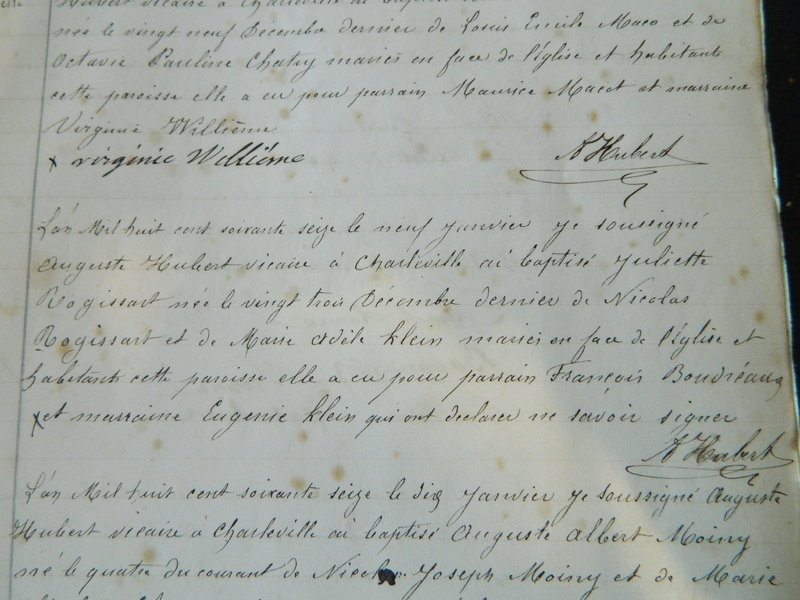 Hubert vicaire à Charleville ai baptisé
née le vingt neuf Décembre dernier de Louis Emile Maco et de
Octavie Pauline Chatry mariés en face de l'église et habitants
cette paroisse elle a eu pour parrain Maurice Macot et marraine
Virginie Willième
x virginie Willième
A Hubert
L'an Mil huit cent soixante seize le neuf Janvier je soussigné
Auguste Hubert vicaire à Charleville ai baptisé Juliette
Rogissart née le vingt trois Décembre dernier de Nicolas
Rogissart et de Marie Adèle Klein mariés en face de l'église et
habitants cette paroisse elle a eu pour parrain François Boudréaux
x et marraine Eugenie Klein qui ont declarer ne savoir signer
A Hubert
L'an Mil huit cent soixante seize le dix Janvier je soussigné Auguste
Hubert vicaire à Charleville ai baptisé Auguste Albert Moiny
né le quatre du courant de Nicolas Joseph Moiny et de Marie